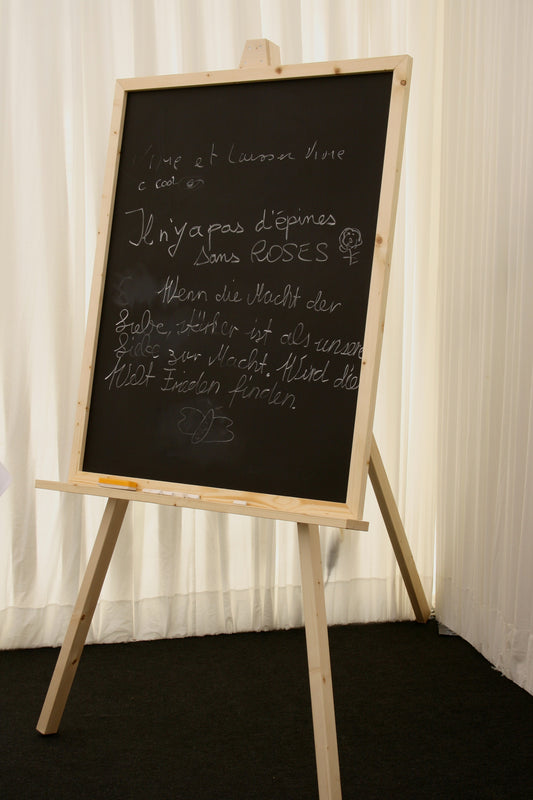 Vivre et Laisser Vivre
c cool
Il n'y a pas d'épines
sans ROSES
Wenn die Macht der
Liebe, stärker ist als unsere
Liebe zur Macht. Wird die
Welt Frieden finden.